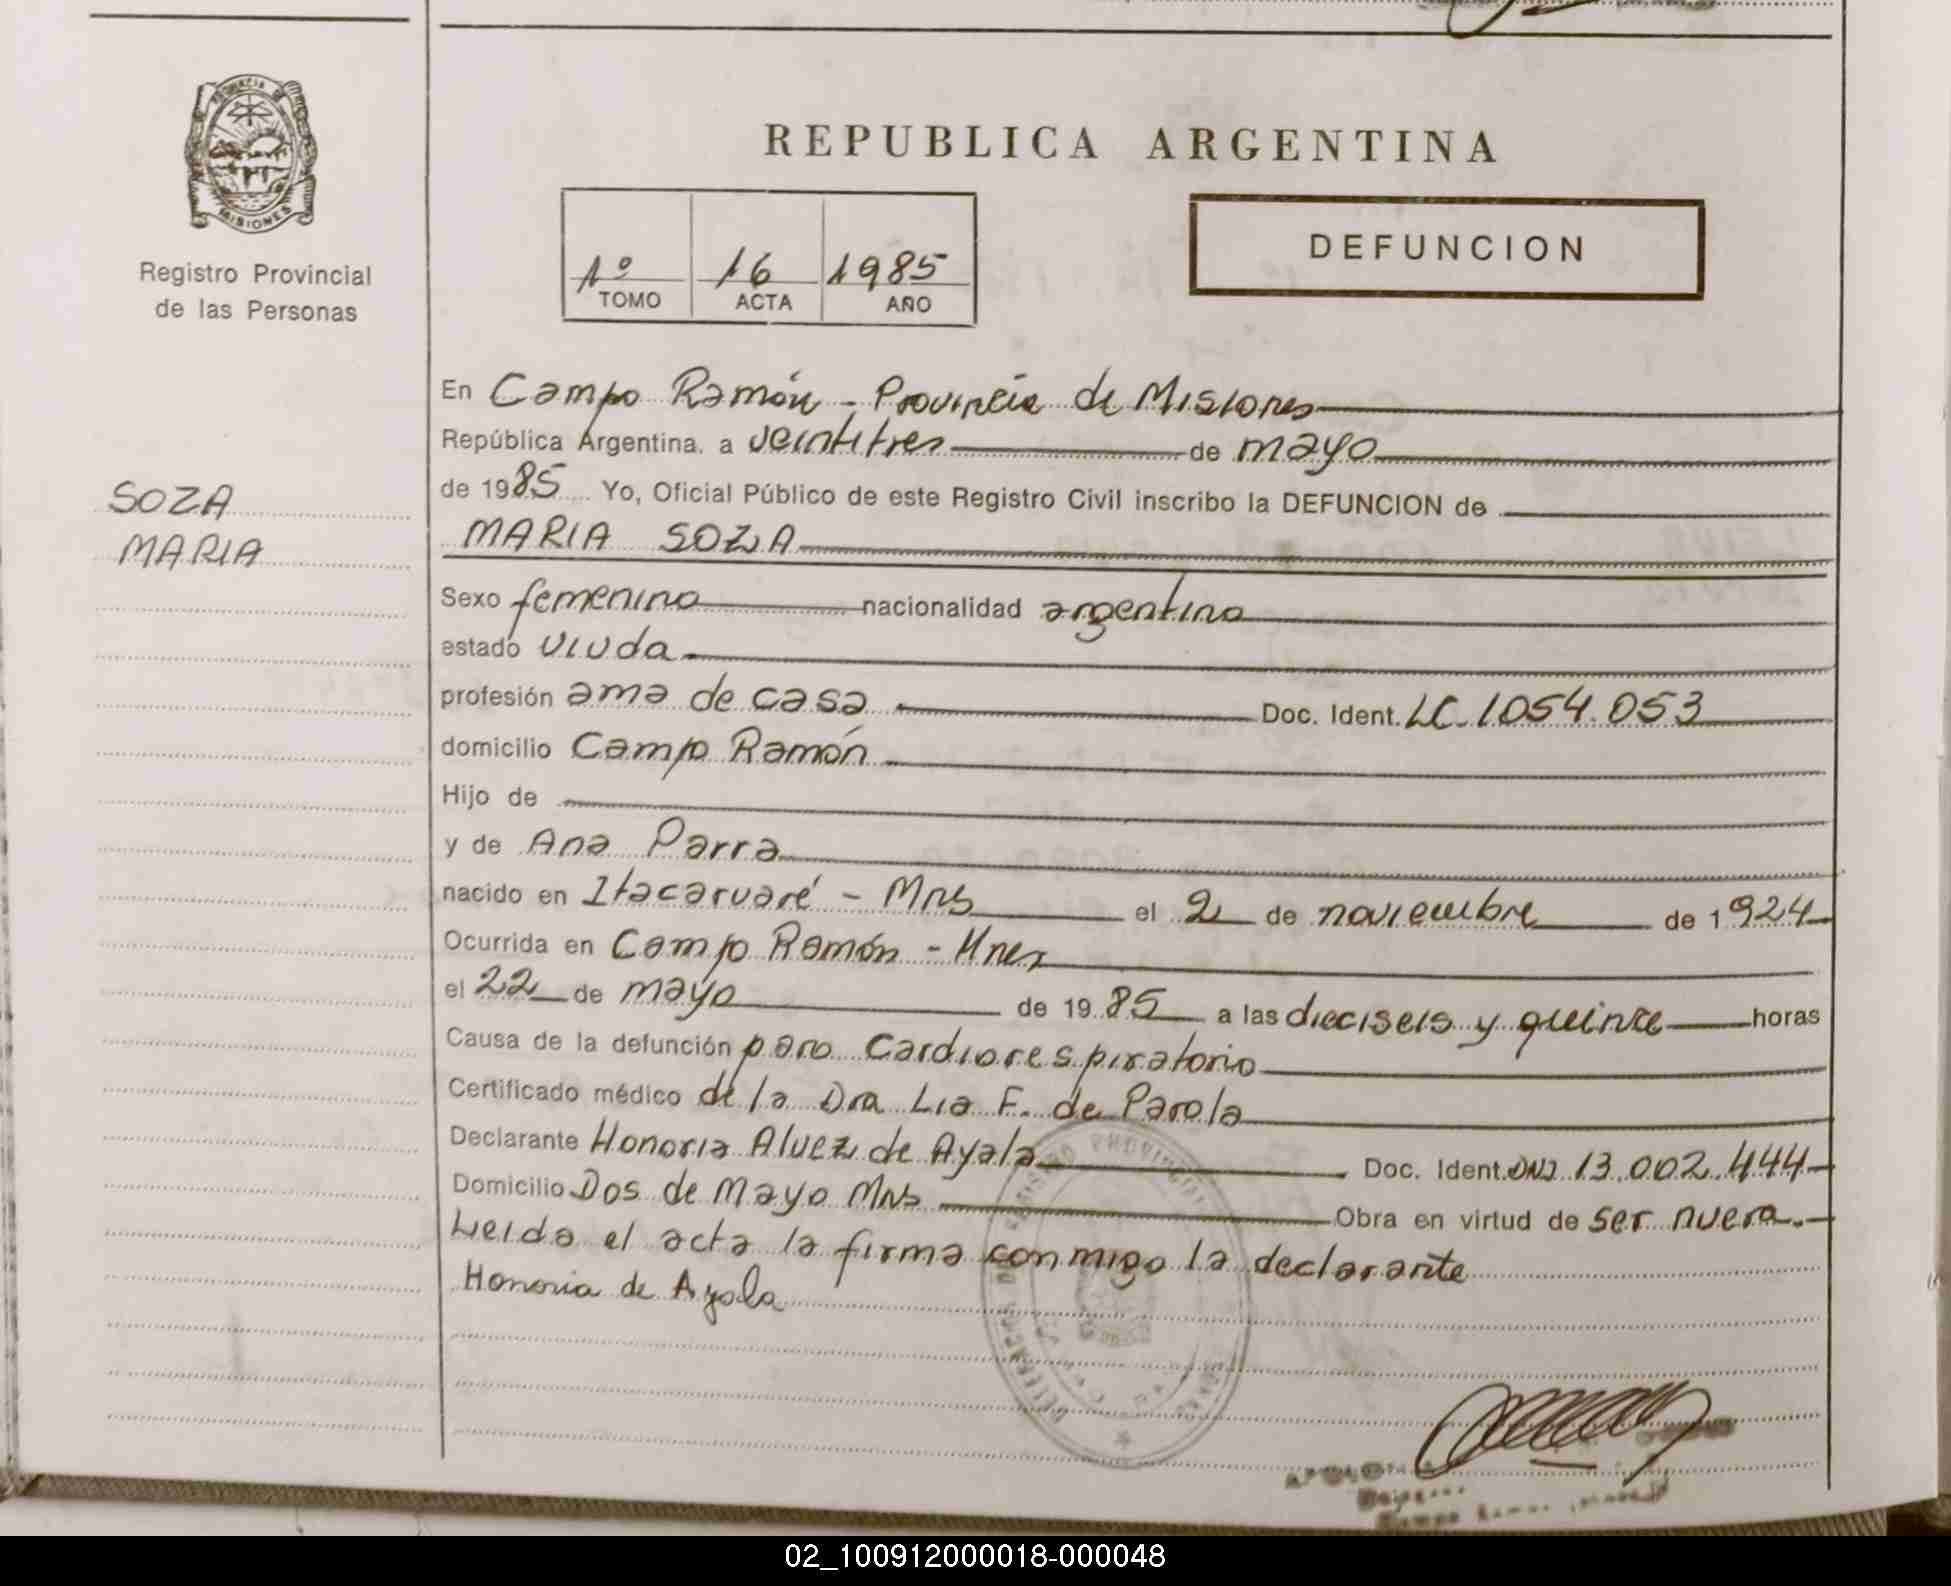 PROVINCIA DE
MISIONES
Registro Provincial
de las Personas
SOZA
MARIA
REPUBLICA ARGENTINA
1º 16 1985
TOMO ACTA AÑO
DEFUNCION
En Campo Ramón - Provincia de Misiones
República Argentina, a veintitres de mayo
de 1985 Yo, Oficial Público de este Registro Civil inscribo la DEFUNCION de
MARIA SOZA
Sexo femenino nacionalidad argentina
estado viuda
profesión ama de casa Doc. Ident. LC. 1054.053
domicilio Campo Ramón
Hijo de
y de Ana Parra
nacido en Itacaruaré - Mns el 2 de noviembre de 1924
Ocurrida en Campo Ramón - Mnes
el 22 de mayo de 1985 a las dieciseis y quince horas
Causa de la defunción paro cardiorespiratorio
Certificado médico de la Dra Lia F. de Parola
Declarante Honoria Alvez de Ayala Doc. Ident. DNI 13.002.444
Domicilio Dos de Mayo Mns Obra en virtud de ser nuera.
Leida el acta la firma conmigo la declarante
Honoria de Ayala
REGISTRO PROVINCIAL
02_100912000018-000048